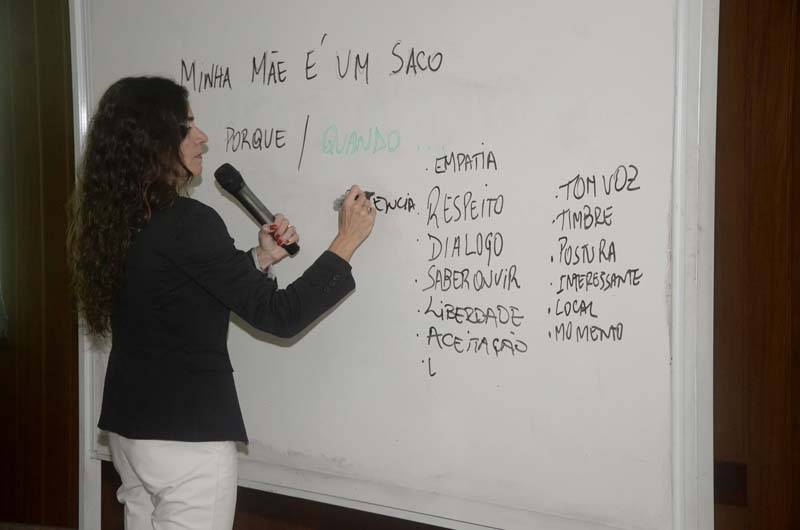 MINHA MÃE É UM SACO
PORQUE / QUANDO ....
. EMPATIA
ENCIA . RESPEITO
DIALOGO
. SABER OUVIR
. LIBERDADE
. ACEITAÇÃO
. L
. TOM VOZ
. TIMBRE
. POSTURA
. INTERESSANTE
. LOCAL
. MOMENTO